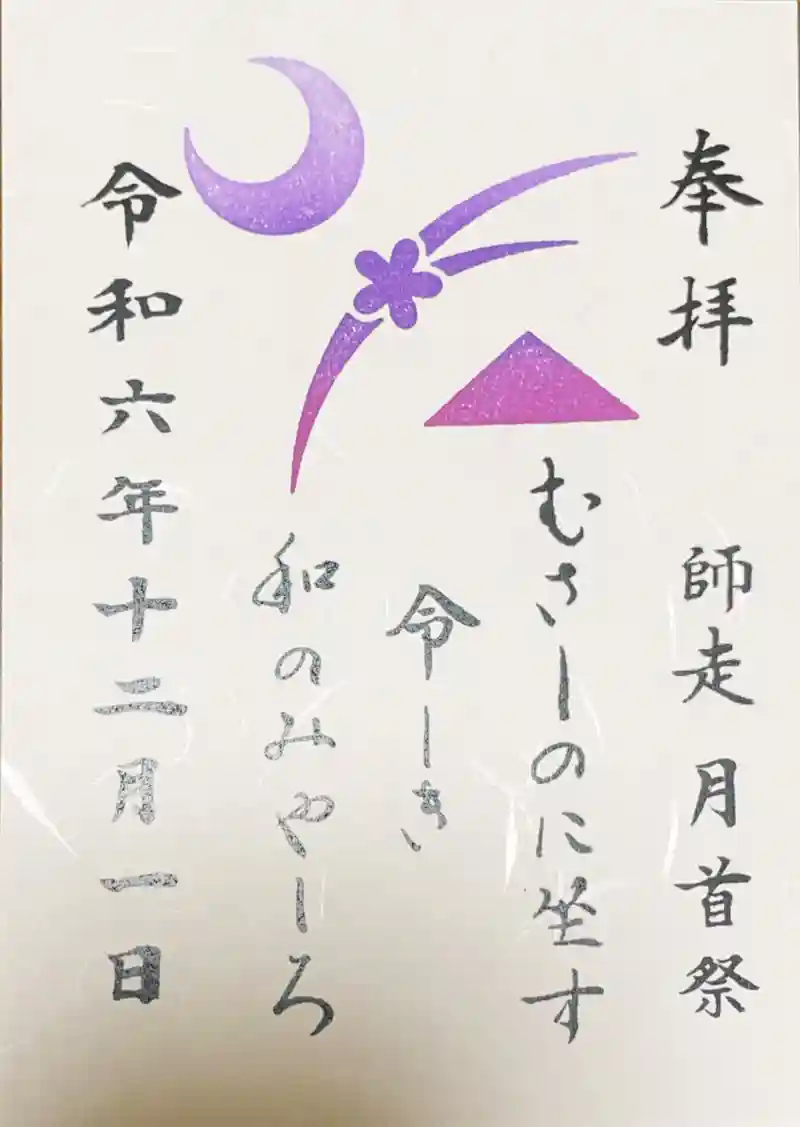 奉拝 師走 月首祭
むさしのに坐す
令しき
和のみやしろ
令和六年十二月一日